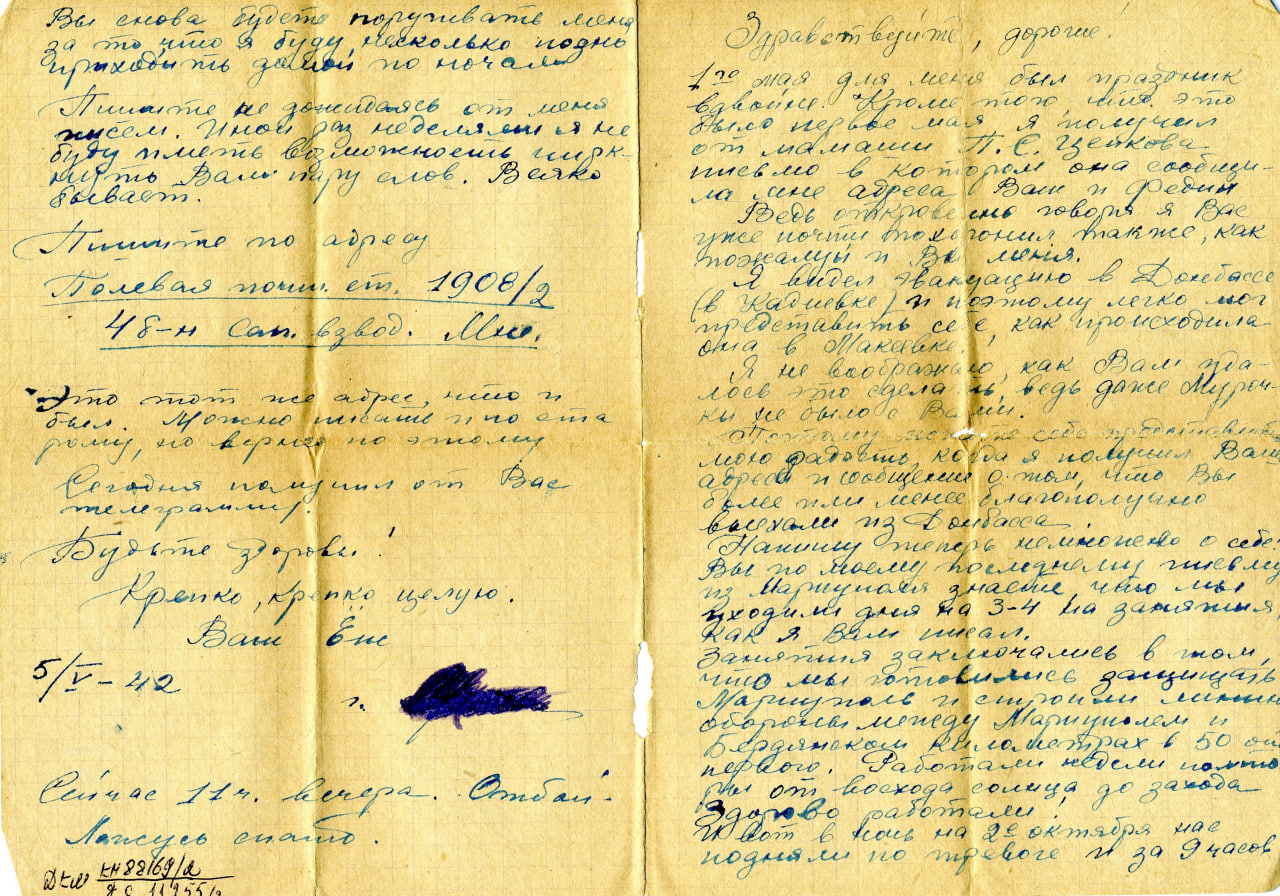 Вы снова будете поругивать меня
за то, что я буду несколько поздно
приходить домой по ночам
Пишите не дожидаясь от меня
писем. Иной раз неделями я не
буду иметь возможность чирк-
нуть Вам пару слов. Всяко
бывает.
Пишите по адресу
Полевая почт. ст. 1908/2
4 б-н Сап. взвод. Мне.
Это тот же адрес, что и
был. Можно писать и по ста
рому, но вернее по этому
Сегодня получил от Вас
телеграмму.
Будьте здоровы!
Крепко, крепко целую.
Ваш
5/V – 42
г.
Сейчас 11 ч. вечера. Отбой.
Ложусь спать.
ДКМ КП 88169/2
Здравствуйте, дорогие!
1го мая для меня был праздник
вдвойне. Кроме того, что это
было первое мая я получил
от мамаши П. С. Цепкова
письмо в котором она сообщи-
ла мне адреса Ваш и Федин
Ведь откровенно говоря я Вас
уже почти похоронил также, как
пожалуй и Вы меня.
Я видел эвакуацию в Донбассе
(в Кадиевке) и поэтому легко мог
представить себе, как происходила
она в Макеевке.
Я не воображаю, как Вам уда-
лось это сделать, ведь даже Муроч-
ки не было с Вами.
Поэтому можете себе представить
мою радость, когда я получил Ваш
адрес и сообщение о том, что Вы
более или менее благополучно
выехали из Донбасса.
Напишу теперь немножко о себе.
Вы по моему последнему письму
из Мариуполя знаете что мы
уходили дня на 3-4 на занятия,
как я Вам писал.
Занятия заключались в том,
что мы готовились защищать
Мариуполь и строили линии
обороны между Мариуполем и
Бердянском километрах в 50 от
первого. Работали недели полто
ры от восхода солнца до захода
Здорово работали!
И вот в ночь на 2е октября нас
подняли по тревоге и за 9 часов